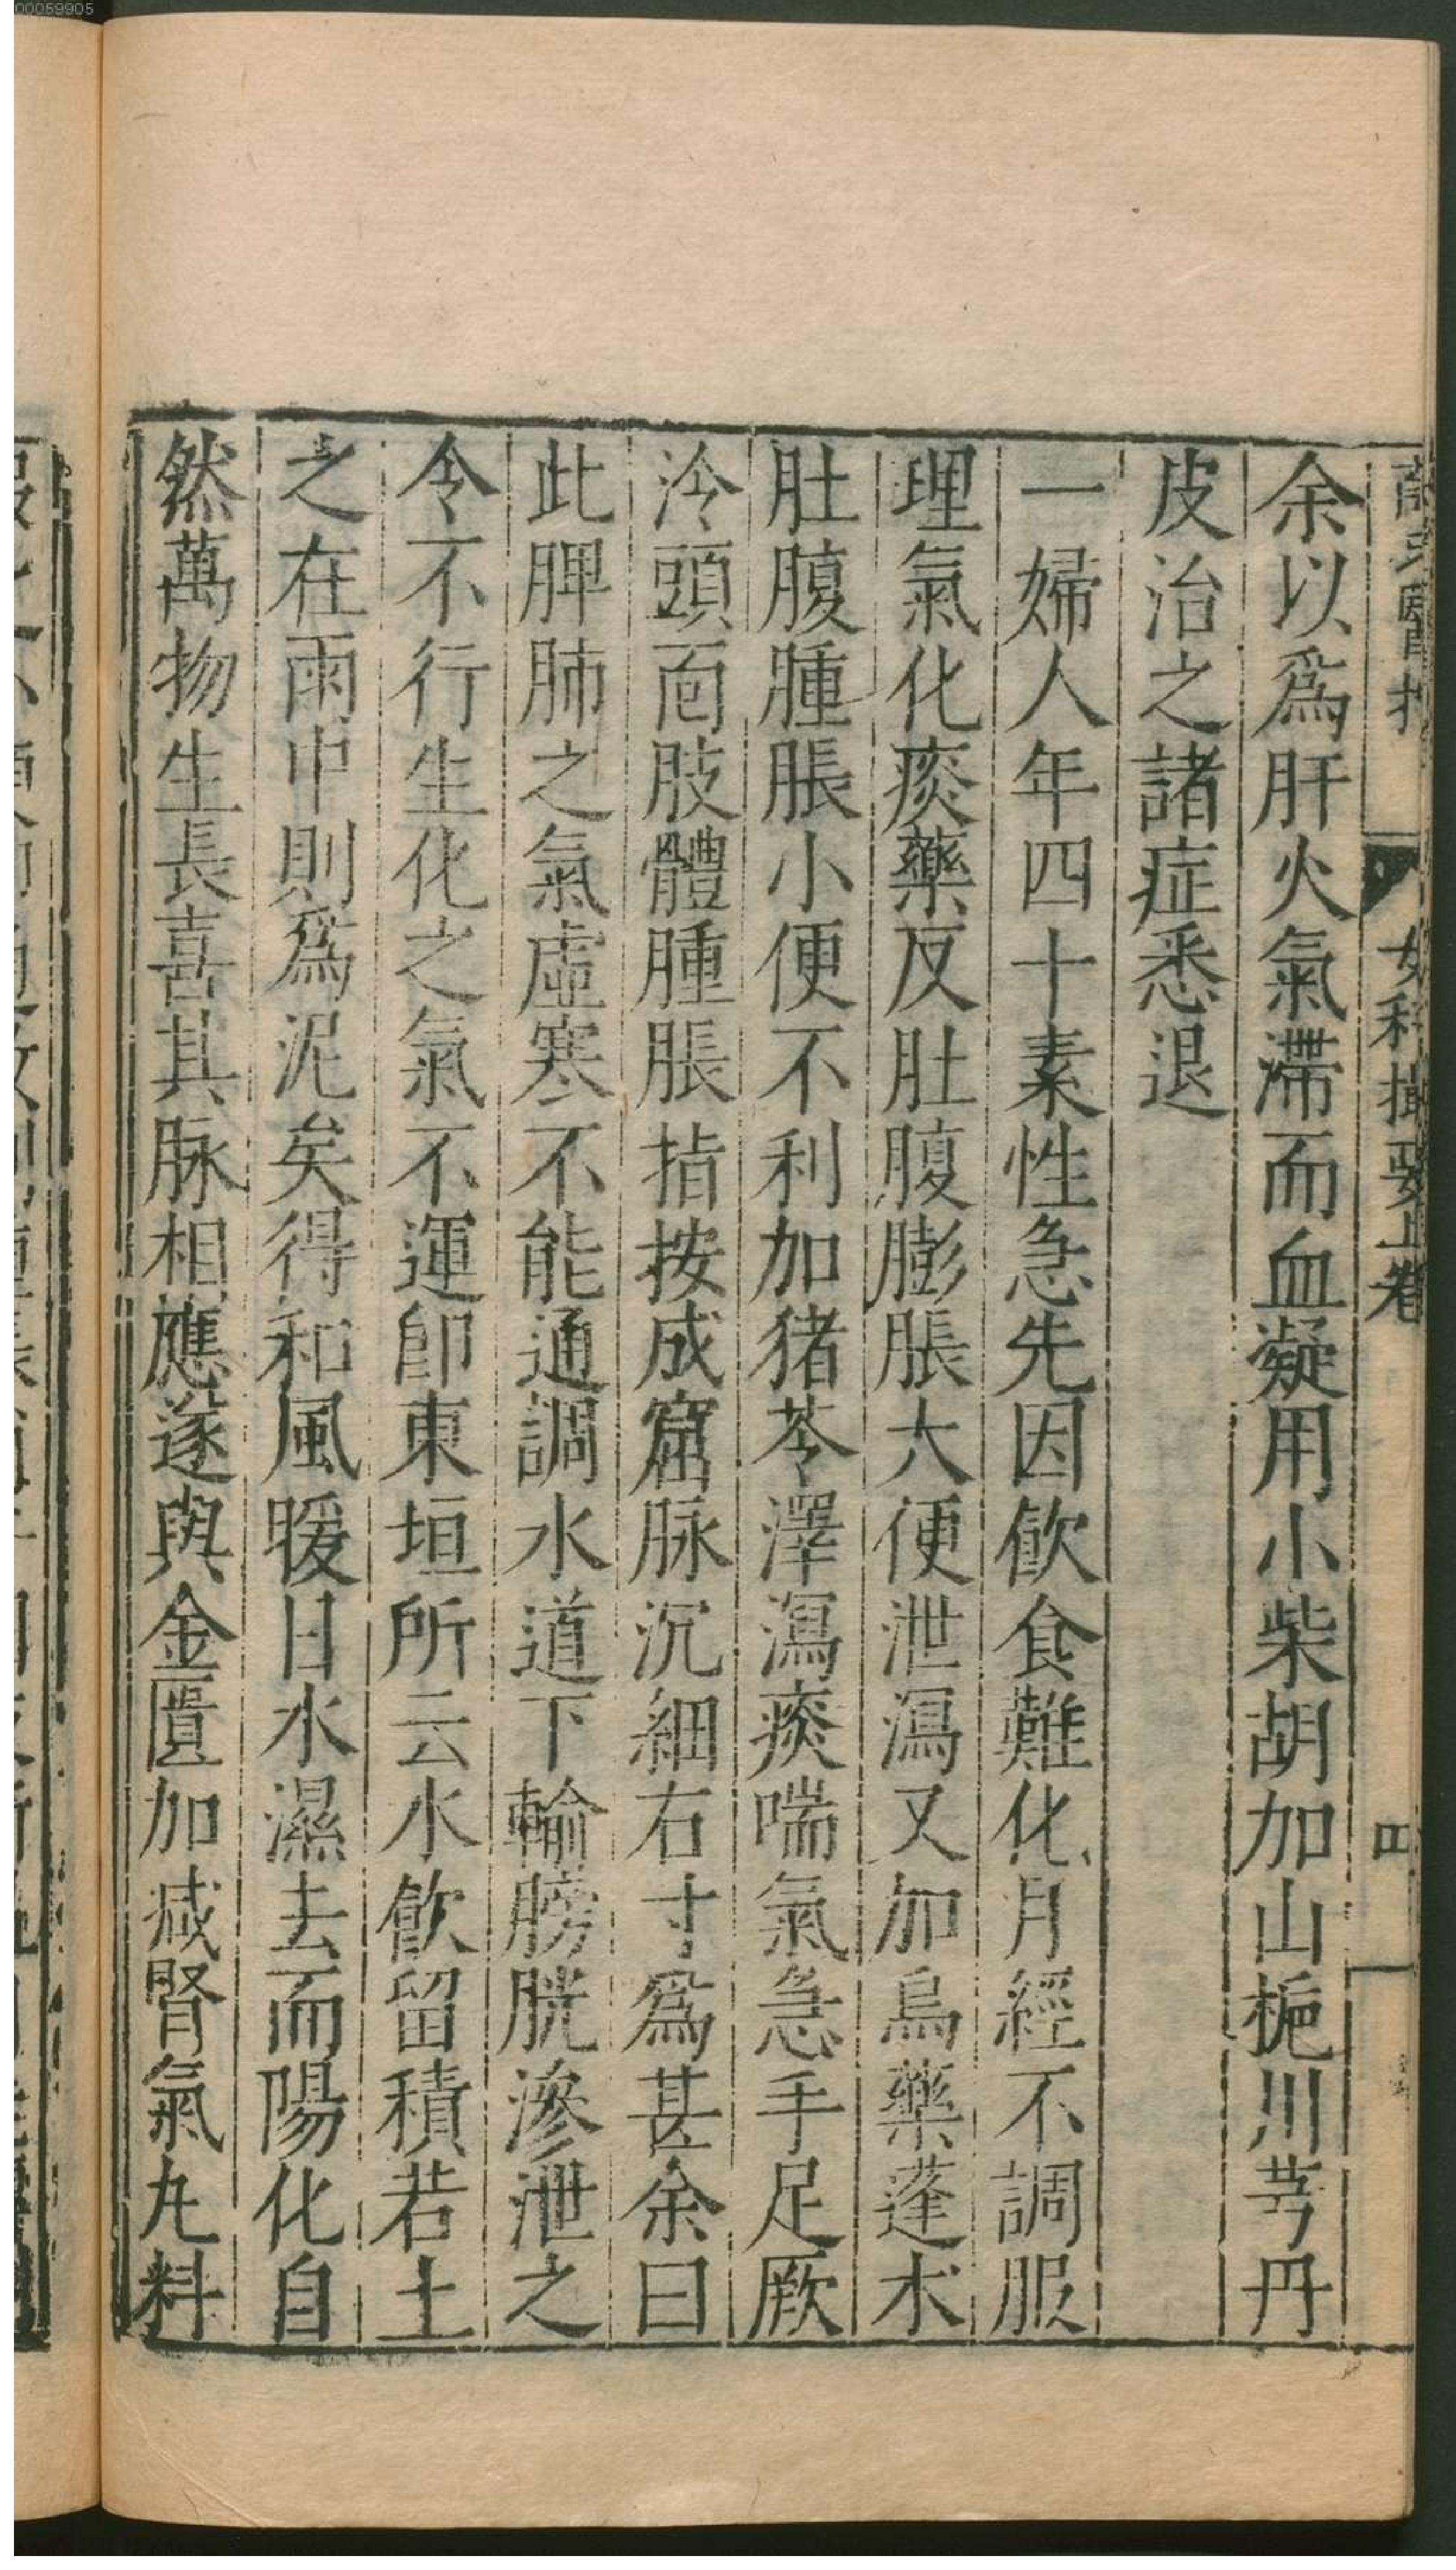 00059905
女科撮要上卷
四
余以爲肝火氣滯而血凝用小柴胡加山梔川芎丹
皮治之諸症悉退
一婦人年四十素性急先因飲食難化月經不調服
理氣化痰藥反肚腹膨脹大便泄瀉又加烏藥蓬朮
肚腹腫脹小便不利加猪苓澤瀉痰喘氣急手足厥
冷頭面肢體腫脹指按成窟脉沉細右寸爲甚余曰
此脾肺之氣虛寒不能通調水道下輸膀胱滲泄之
令不行生化之氣不運卽東垣所云水飲留積若土
之在雨中則爲泥矣得和風暖日水濕去而陽化自
然萬物生長喜其脉相應遂與金匱加減腎氣丸料